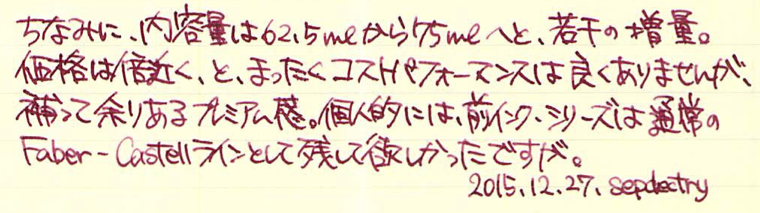 ちなみに、内容量は62.5mlから75mlへと、若干の増量。
価格は倍近く、と、まったくコストパフォーマンスは良くありませんが、
補って余りあるプレミアム感。個人的には、前インク・シリーズは通常の
Faber-Castellラインとして残して欲しかったですが。
2015.12.27. sepdectry